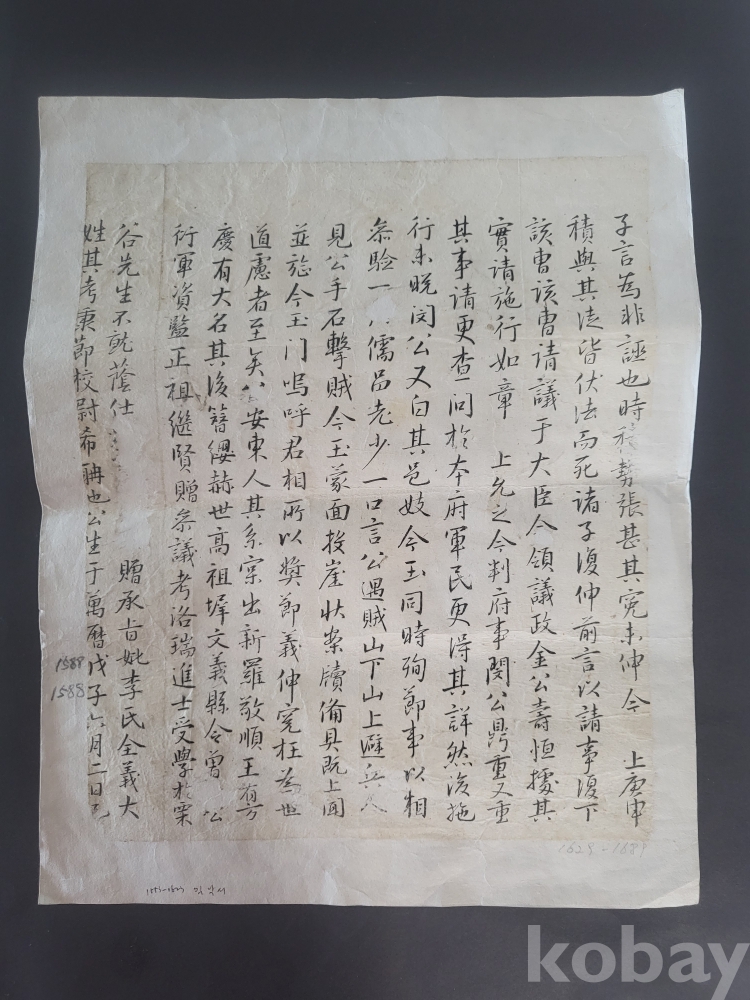 子言為非誣也時積勢張甚其冤未伸今 上庚申
積與其徒皆伏法而死諸子復伸前言以請事復下
該曹該曹請議于大臣今領議政金公壽恒據其
實請施行如章 上允之令判府事閔公鼎重又重
其事請更查問於本府軍民更得其詳然後施
行未晚閔公又白其邑妓今玉同時殉節事以相
叅驗一 儒品老少一口言公遇賊山下山上避兵人
見公手石擊賊今玉蒙面投崖狀案牘備具既上聞
並旌今玉门嗚呼君相所以奬節義伸冤枉為世
道慮者至矣公安東人其系寔出新羅敬順王有方
慶有大名其後簪纓赫世高祖墀文義縣令曾 公
衍軍資監正祖繼賢贈叅議考洛瑞進士受學於栗
谷先生不就蔭仕 贈承旨妣李氏全義大
姓其考秉節校尉希聃也公生于萬曆戊子六月二日
1588
1588
1629-1689
kobay